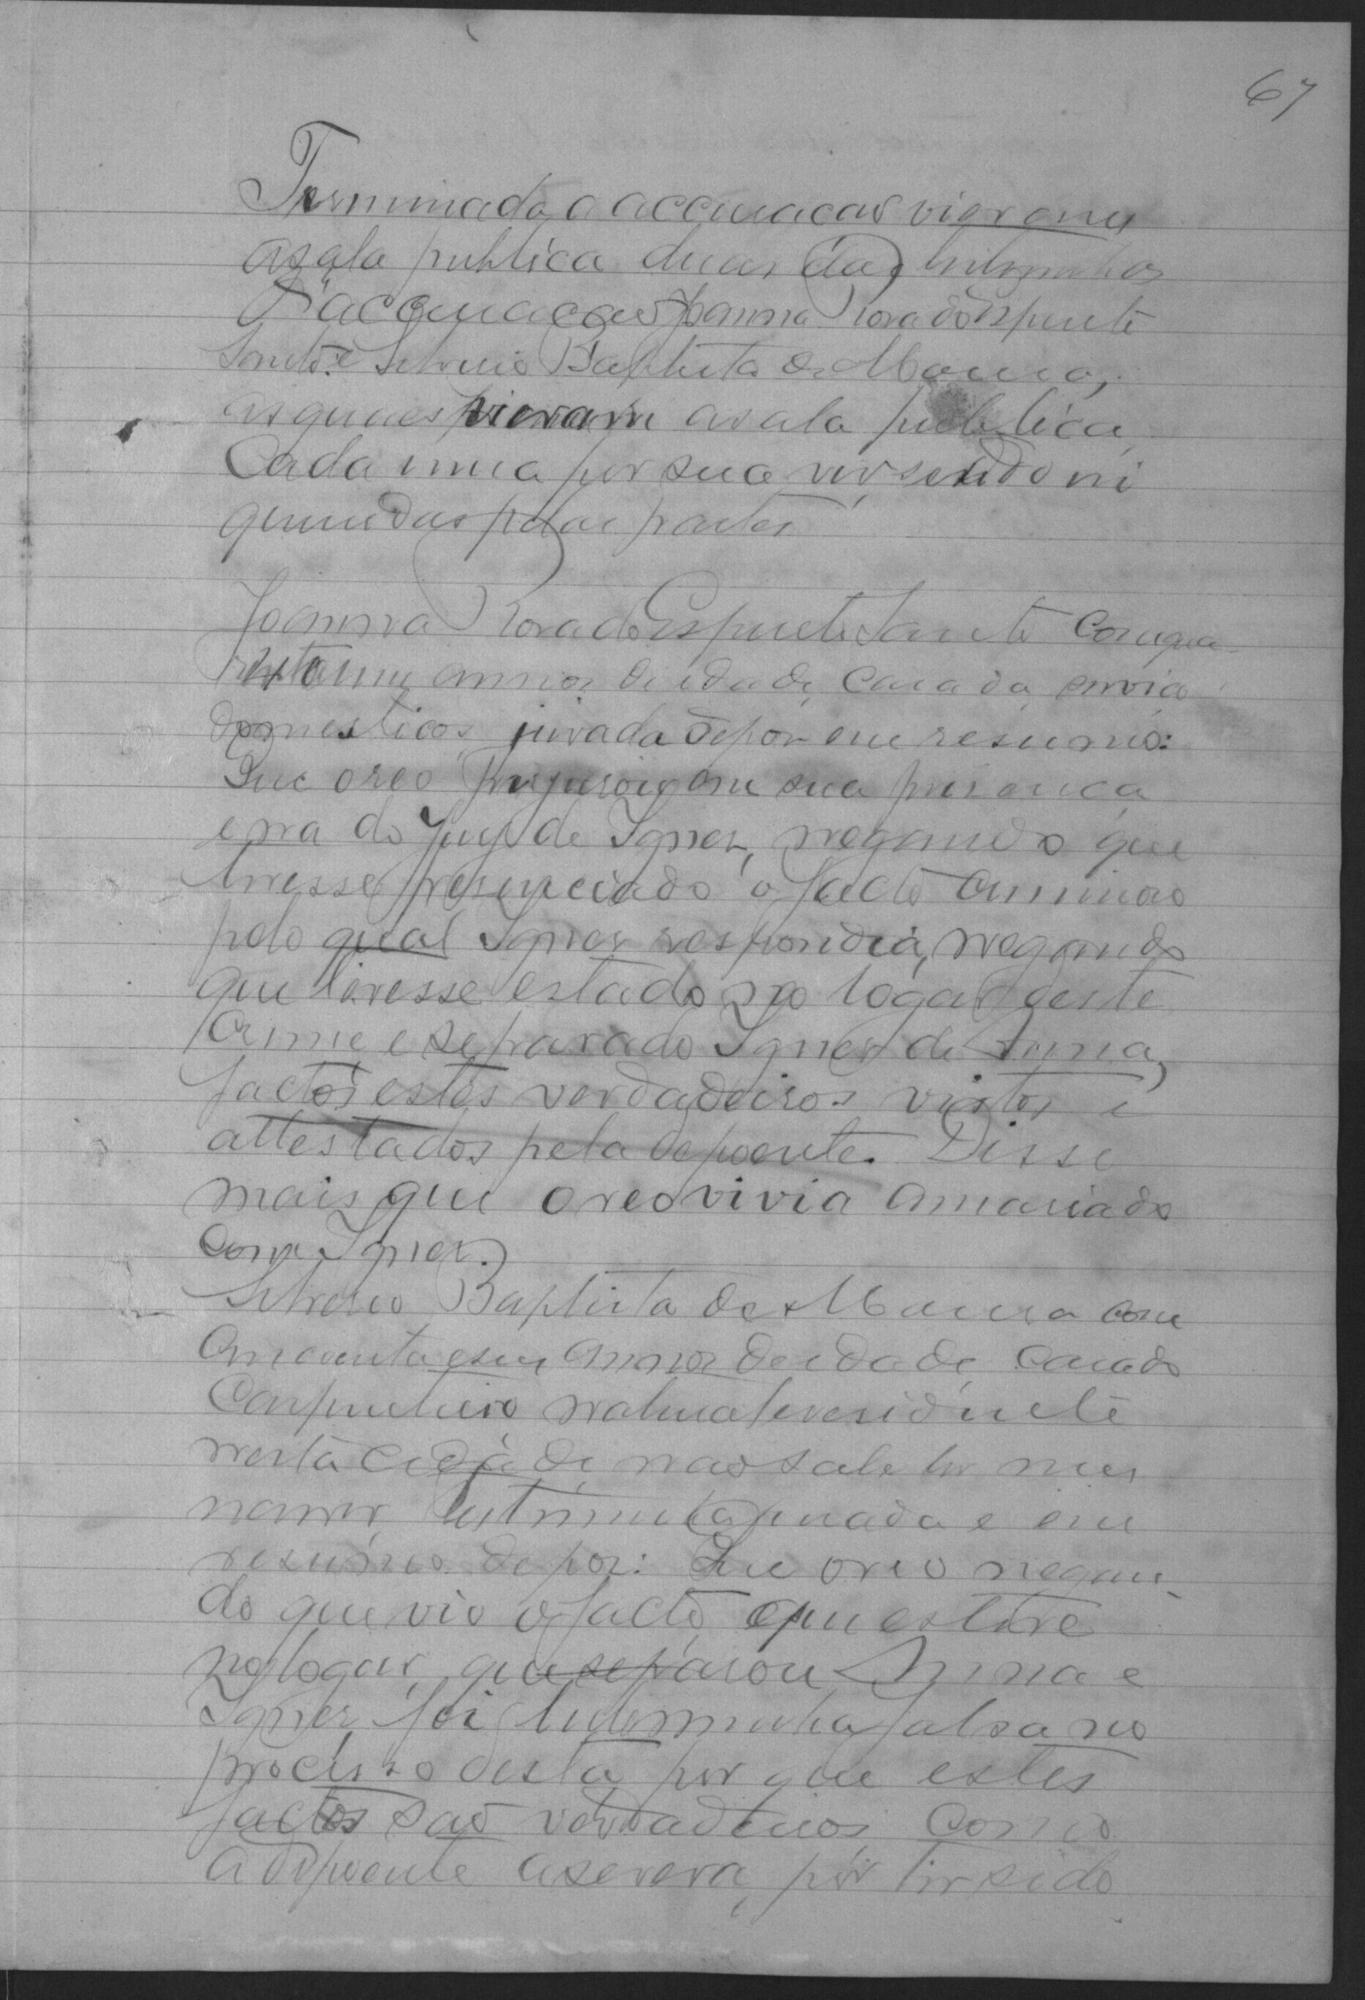 67
Terminada a accusacao vieram
a sala publica duas das testemunhas
d'accusacao Joanna Rosa do Espirito
Santo e Silverio Baptista de Moura,
as quaes vieram a sala publica
Cada uma por sua vez sendo in
quiridas pelas partes
Joanna Rosa do Espirito Santo com qua
renta annos de idade, casada, servico
domesticos, jurada depôz em resumo:
Que o reo perjurou em sua presença
e na do Juiz de Ignez, negando que
tivesse presenciado o facto criminoso
pelo qual Ignez respondia, negando
que tivesse estado no logar deste
crime e separado Ignez de Anna,
factos estes verdadeiros vistos e
attestados pela depoente. Disse
mais que o reo vivia amasiado
com Ignez.
Silverio Baptista de Moura com
Cincoenta e seis annos de idade, Casado
Carpinteiro natural e residente
nesta cidade, nao sabe ler nem
escrever, testemunha jurada e em
resumo depoz: Que o reo negan-
do que vio o facto, que esteve
no logar, que separou Anna e
Ignez, foi testemunha falsa no
processo desta por que estes
factos são verdadeiros, como
a depoente assevera, por ter sido